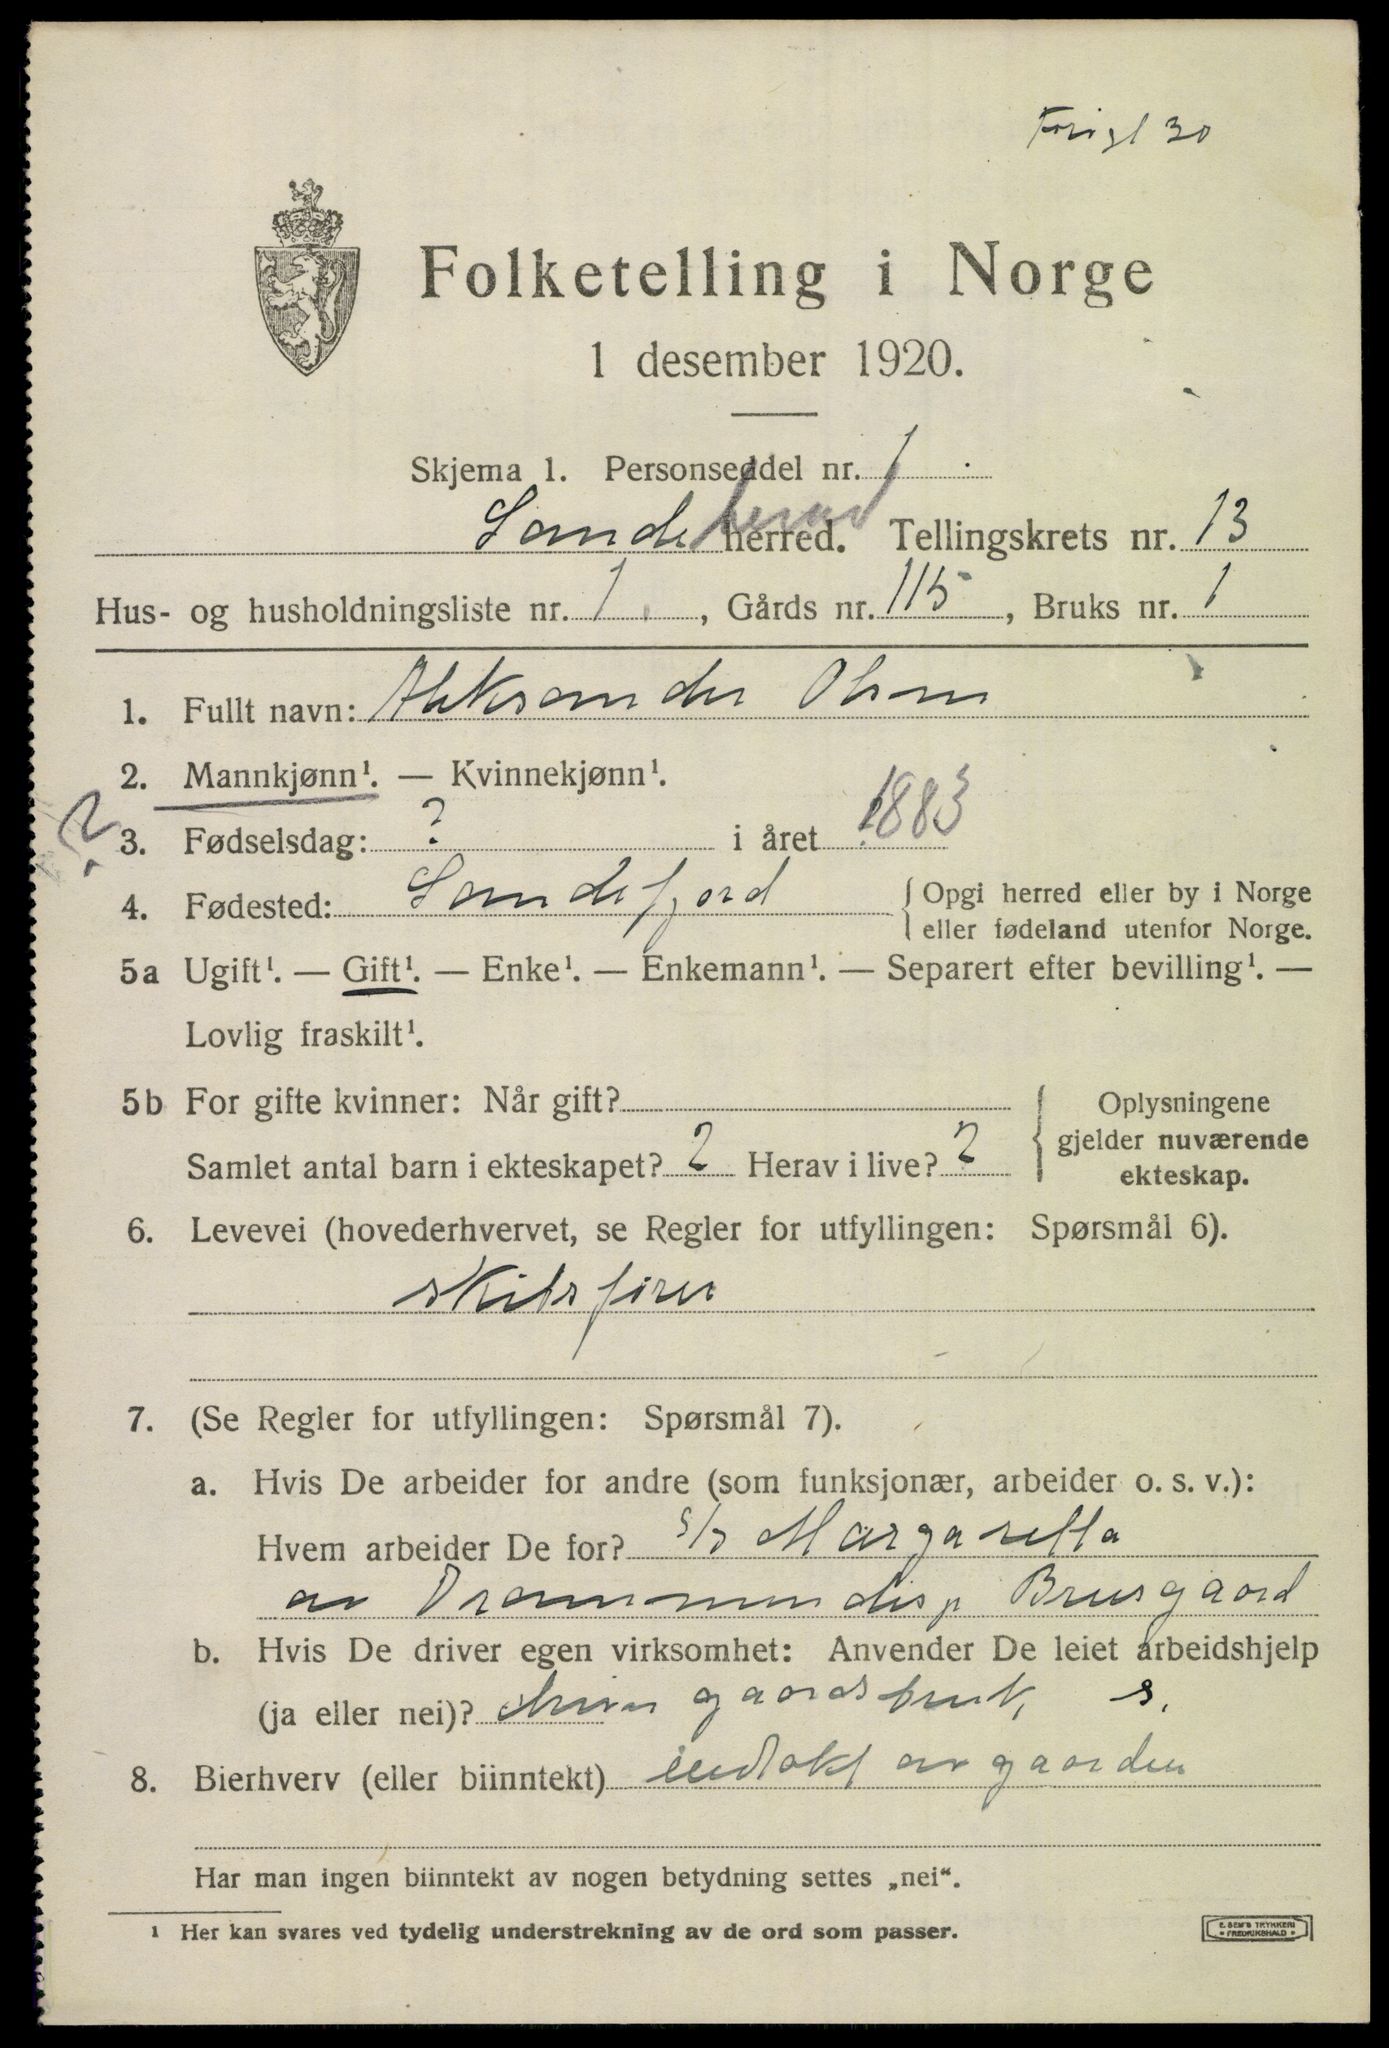 Folketelling i Norge
1 desember 1920.
Skjema 1. Personseddel nr. 1
Sandeherred herred. Tellingskrets nr. 13
Hus- og husholdningsliste nr. 1, Gårds nr. 115, Bruks nr. 1
1. Fullt navn: Aleksander Olsen
2. Mannkjønn¹. — Kvinnekjønn¹.
? 3. Fødselsdag: ? i året 1883
4. Fødested: Sandefjord { Opgi herred eller by i Norge
eller fødeland utenfor Norge.
5a Ugift¹. — Gift¹. — Enke¹. — Enkemann¹. — Separert efter bevilling¹. —
Lovlig fraskilt¹.
5b For gifte kvinner: Når gift? { Oplysningene
gjelder nuværende
ekteskap.
Samlet antal barn i ekteskapet? 2 Herav i live? 2
6. Levevei (hovederhvervet, se Regler for utfyllingen: Spørsmål 6).
skibsfører
7. (Se Regler for utfyllingen: Spørsmål 7).
a. Hvis De arbeider for andre (som funksjonær, arbeider o. s. v.):
Hvem arbeider De for? s/s Margaretta
av Drammen disp Bruusgaard
b. Hvis De driver egen virksomhet: Anvender De leiet arbeidshjelp
(ja eller nei)? driver gaardsbruk, s.
8. Bierhverv (eller biinntekt) indtekt av gaarden
Har man ingen biinntekt av nogen betydning settes „nei“.
¹ Her kan svares ved tydelig understrekning av de ord som passer.
E. SEM'S TRYKKERI
FREDRIKSHALD